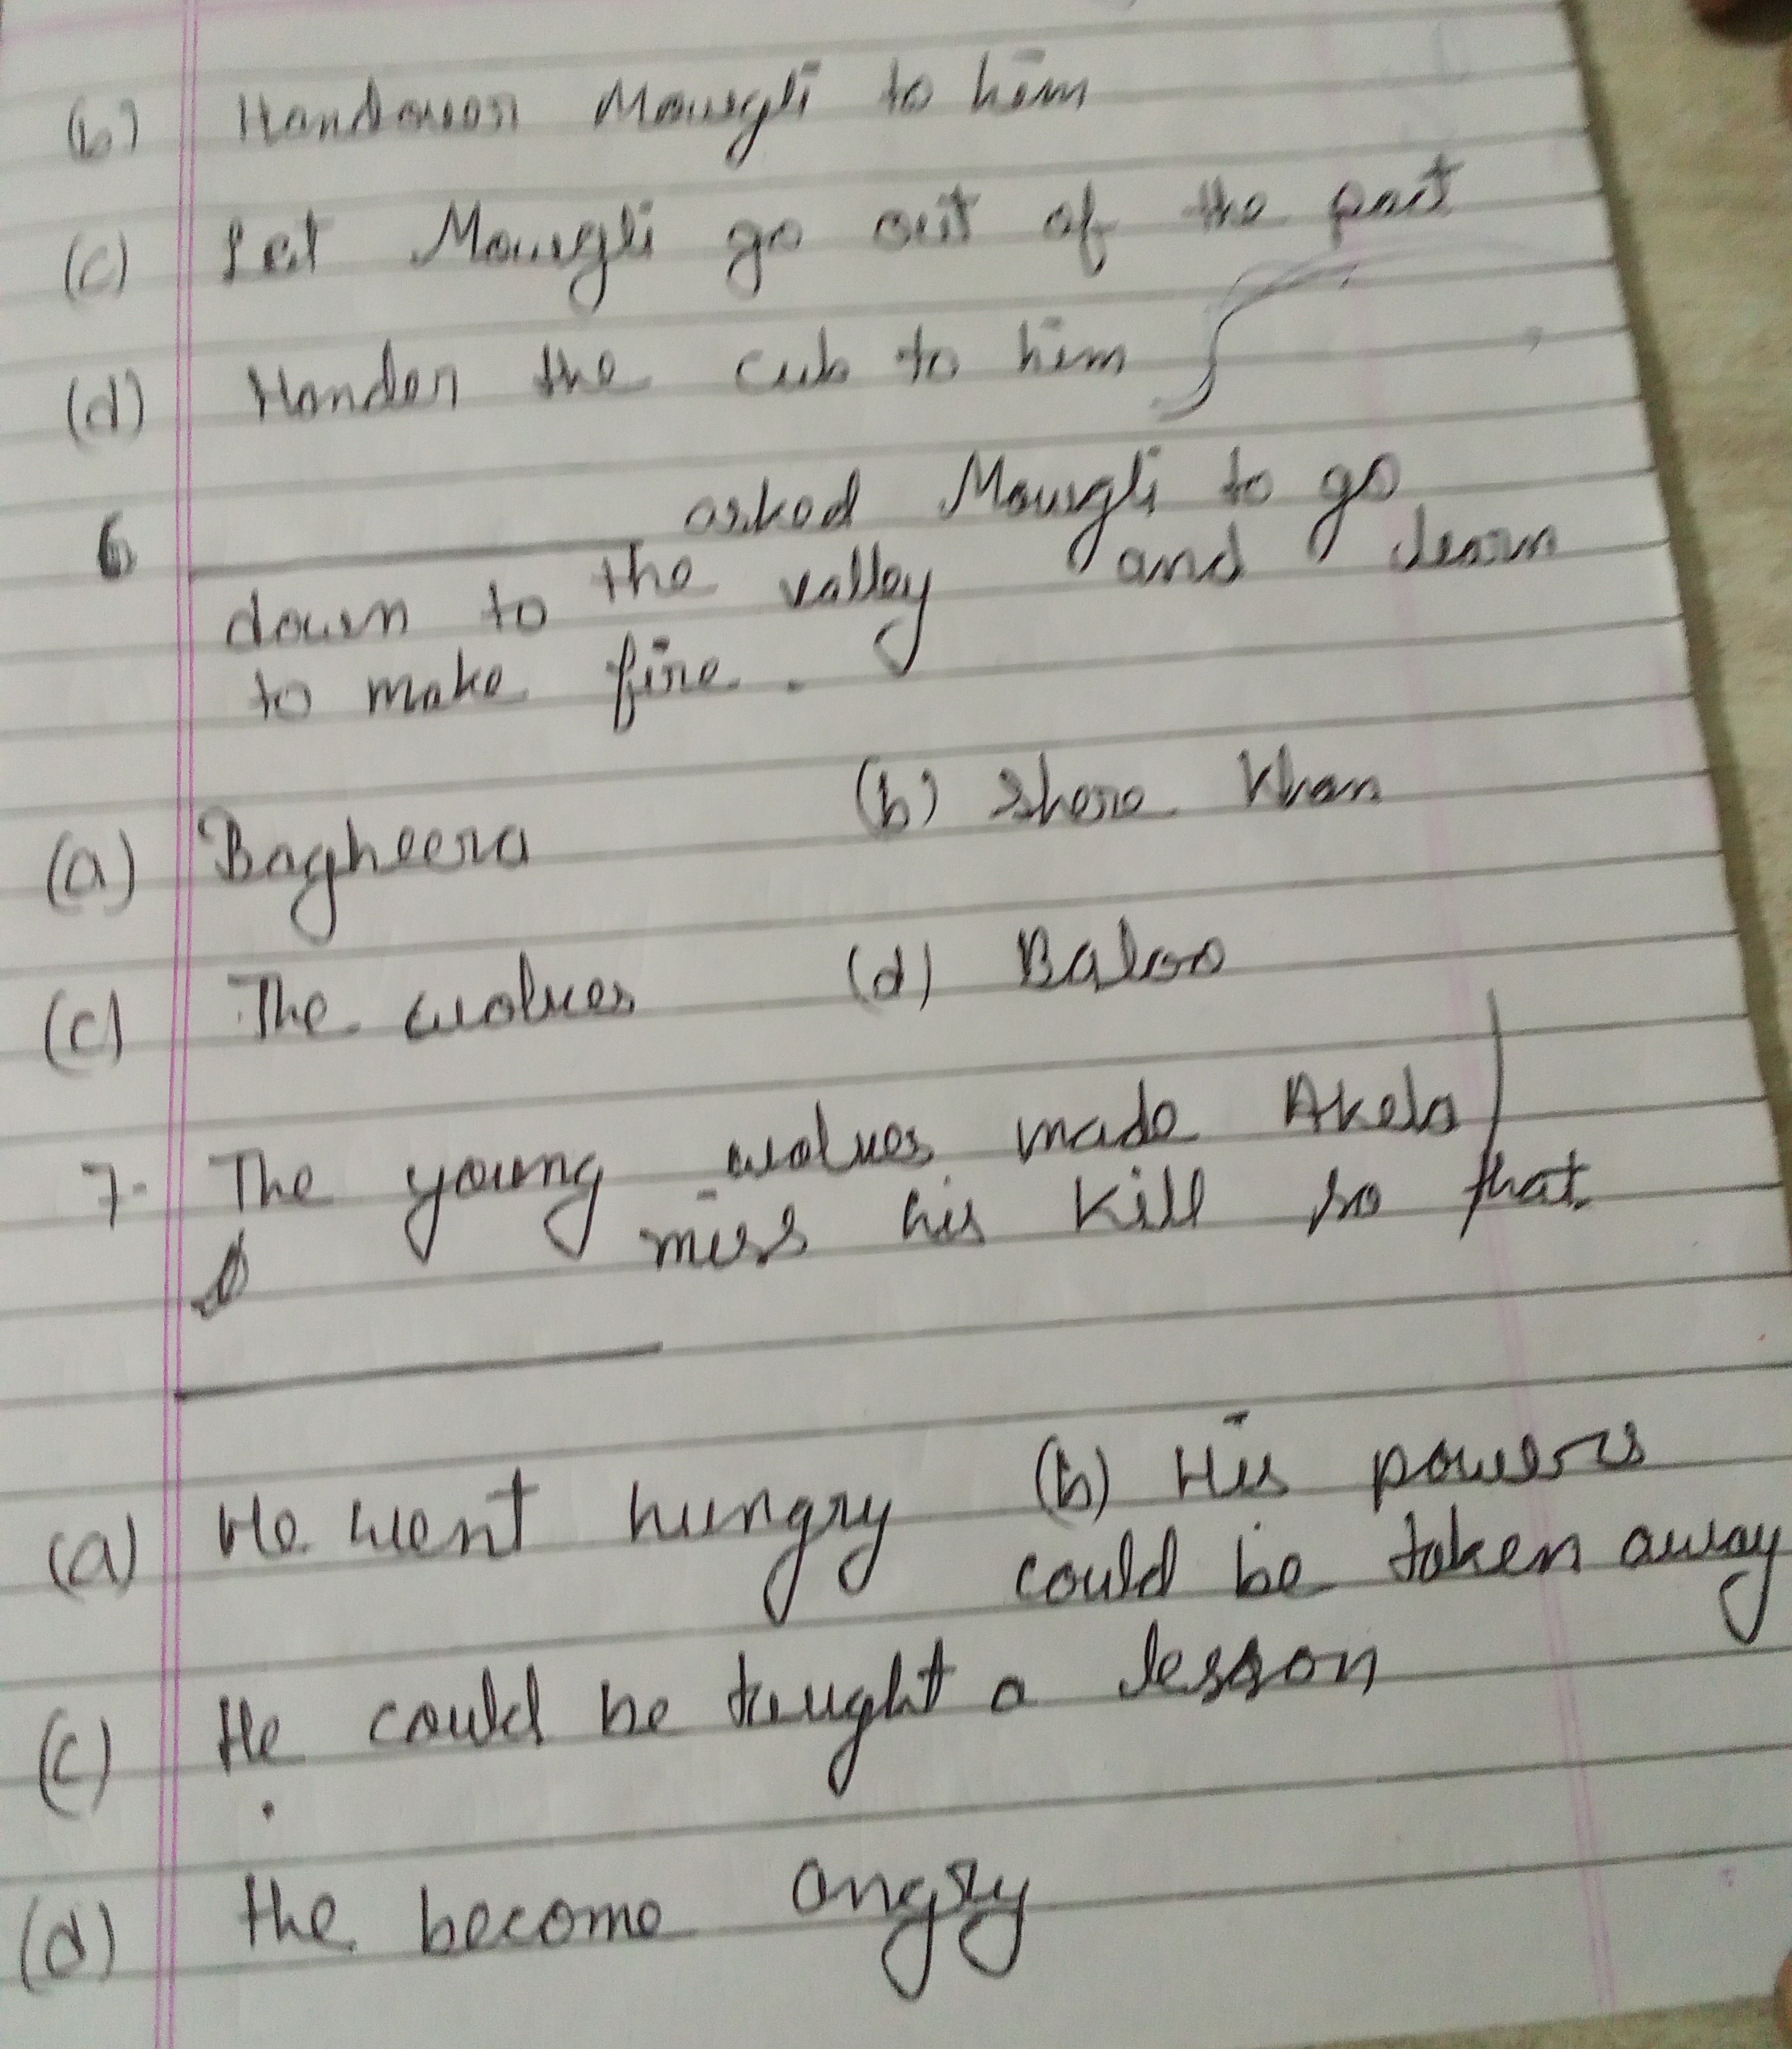 (b) Handover Mowgli to him
(c) Let Mowgli go out of the part
(d) Hander the cub to him
6 ________ asked Mowgli to go
down to the valley and learn
to make fire.
(a) Bagheera (b) Shere Khan
(c) The wolves (d) Baloo
7. The young wolves made Akela
miss his kill so that
________
(a) He went hungry (b) His powers
could be taken away
(c) He could be taught a lesson
(d) the become angry